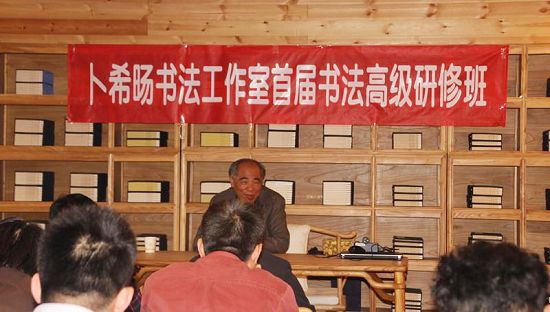 卜希旸书法工作室首届书法高级研修班